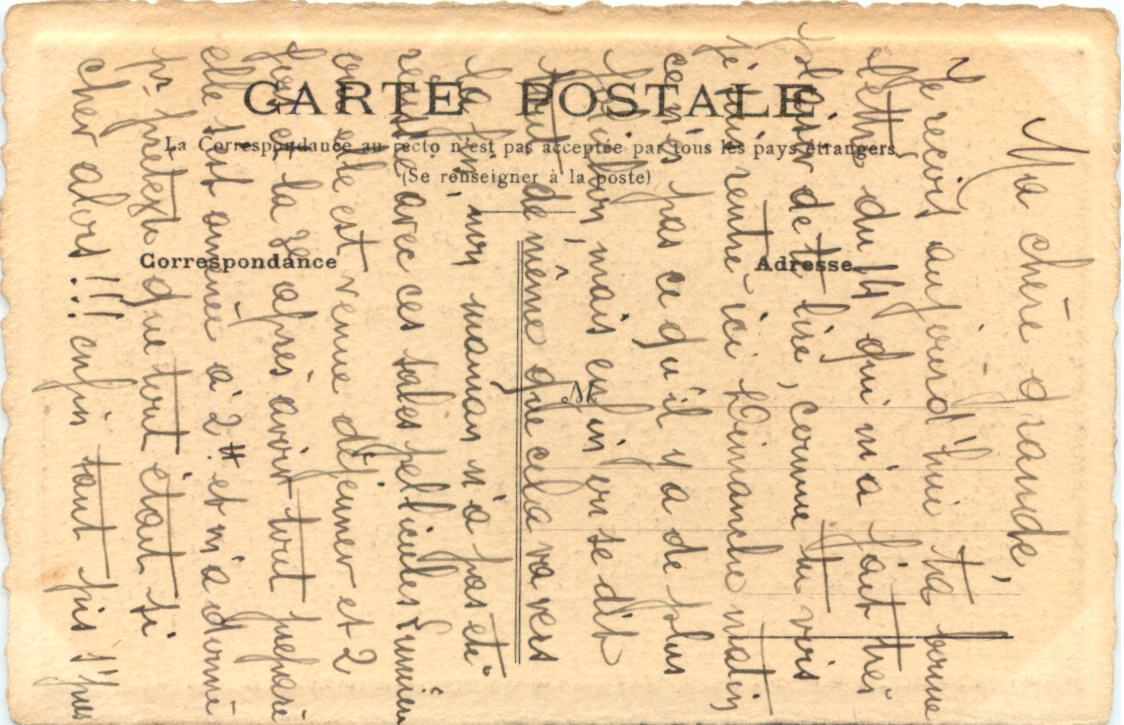 CARTE POSTALE
La Correspondance au recto n'est pas acceptée par tous les pays étrangers
(Se renseigner à la poste)
Correspondance
Adresse
M
Ma chère grande,
Je reçois aujourd'hui ta bonne
lettre du 14 qui m'a fait très
plaisir de te lire, comme tu vois
je suis rentré ici Dimanche matin
ce n'est pas ce qu'il y a de plus
mais enfin on se dit
tout de même que cela va vers
la fin, mon maman n'a pas été
avec ces sales pellicules Lumière
elle est venue déjeuner et 2
et la 3e après avoir tout préparé
elle est arrivée à 2H et m'a donné
pr prétexte que tout était si
cher alors !!! enfin tant pis